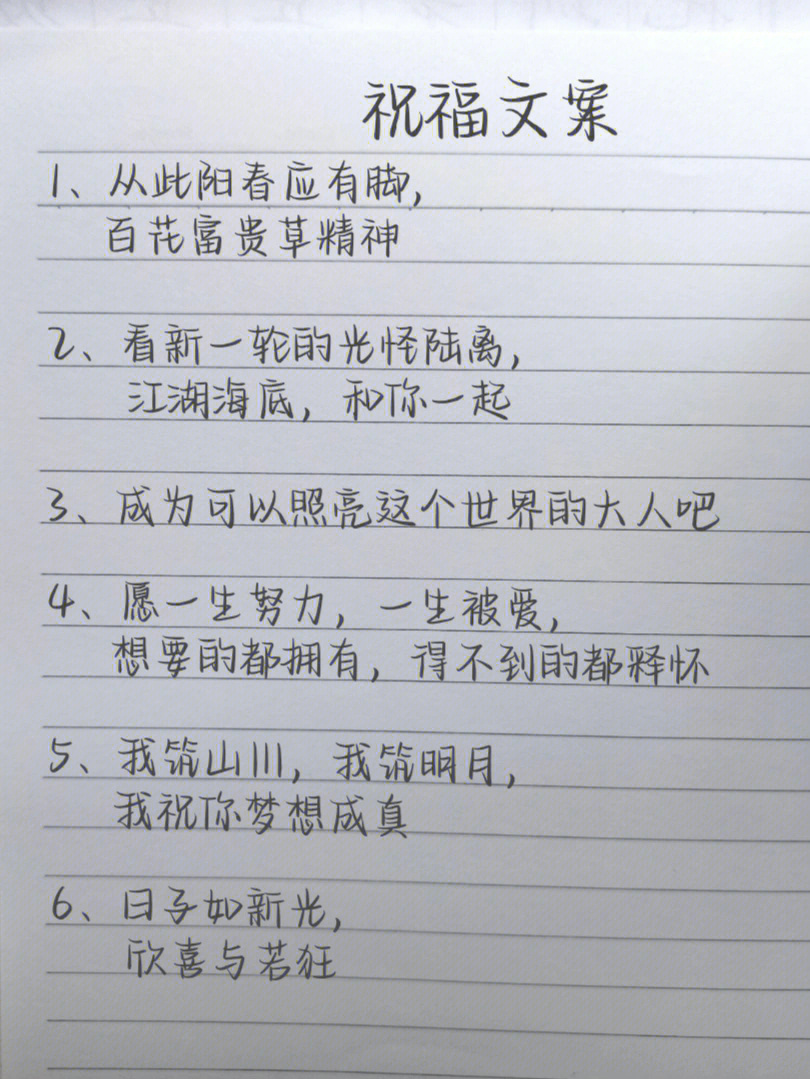 祝福文案
1、从此阳春应有脚,
百花富贵草精神
2、看新一轮的光怪陆离,
江湖海底,和你一起
3、成为可以照亮这个世界的大人吧
4、愿一生努力,一生被爱,
想要的都拥有,得不到的都释怀
5、我筑山川,我筑明月,
我祝你梦想成真
6、日子如新光,
欣喜与若狂